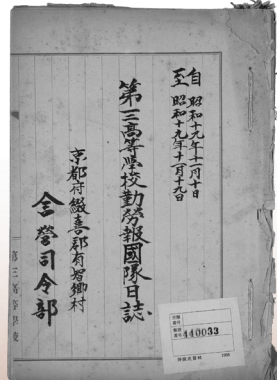 自 昭和十九年十一月十日
至 昭和十九年十一月十九日
第三高等學校勤勞報國隊日誌
京都府綴喜郡有智郷村
舎營司令部
440033